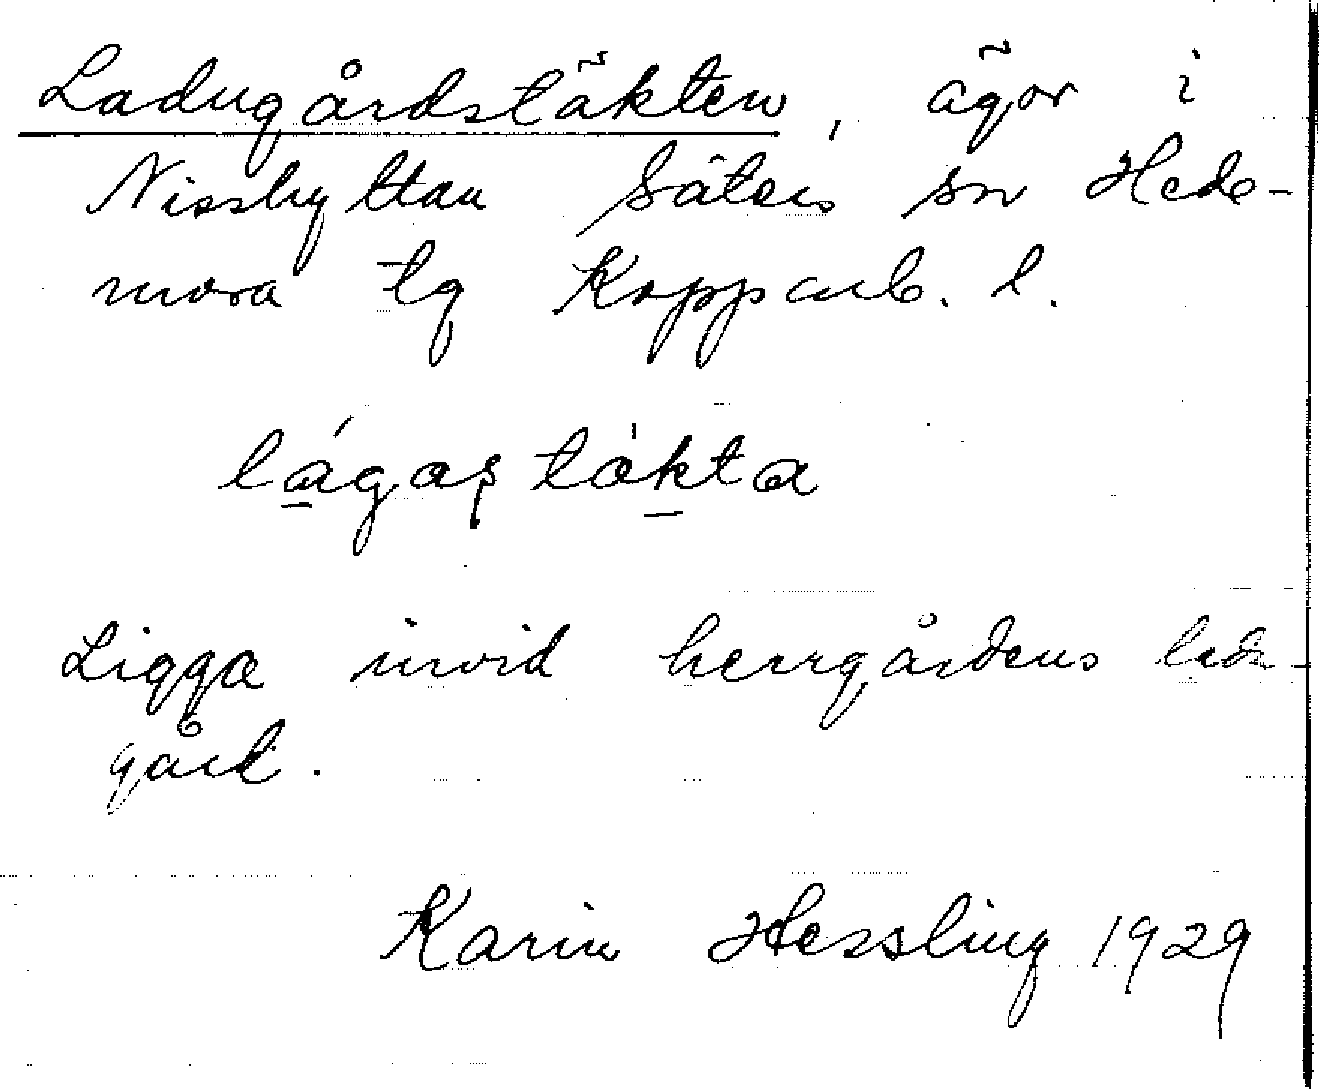 Ladugårdstäkten, ägor i
Nisshyttan Säters sn Hede-
mora tg Kopparb. l.
lágaş tàkta
Ligga invid herrgårdens ladu-
gård.
Karin Hessling 1929